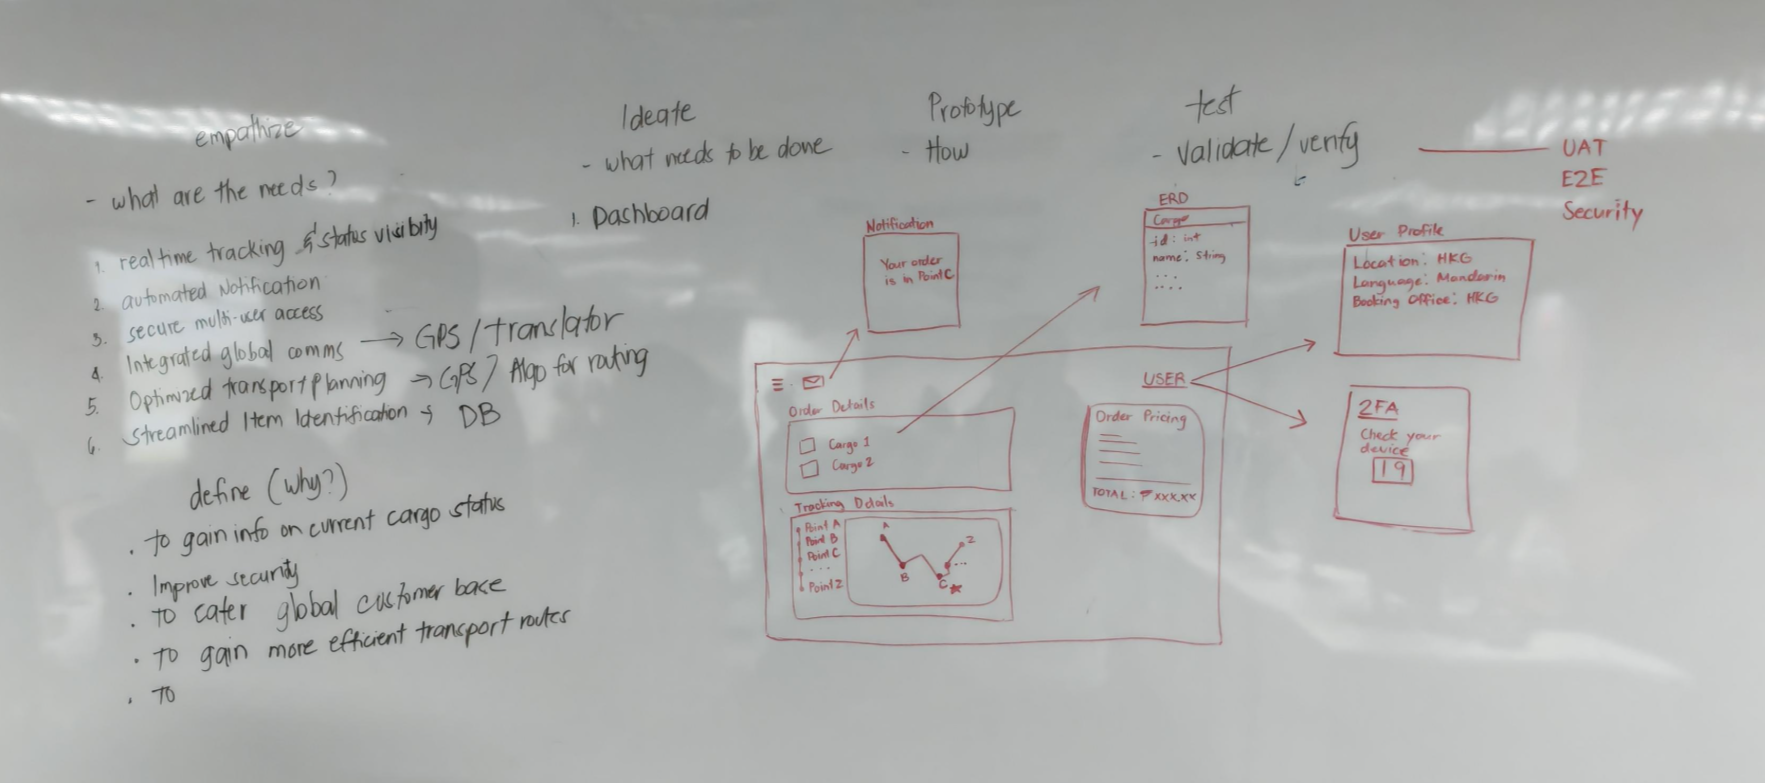 empathize
- what are the needs?
1. real time tracking & status visibility
2. automated Notification
3. secure multi-user access
4. Integrated global comms → GPS / translator
5. Optimized transport planning → GPS / Algo for routing
6. Streamlined Item Identification → DB
define (why?)
. To gain info on current cargo status
. Improve security
. To cater global customer base
. To gain more efficient transport routes
. To
Ideate
- what needs to be done
1. Dashboard
Prototype
- How
test
- validate / verify
UAT
E2E
Security
Notification
Your order
is in Point C
ERD
Cargo
id: int
name: String
. . . .
. . . .
User Profile
Location: HKG
Language: Mandarin
Booking Office: HKG
USER
Order Details
Cargo 1
Cargo 2
Order Pricing
TOTAL: ₱ XXX.XX
Tracking Details
Point A
Point B
Point C
. . .
Point Z
A
B
C
...
Z
2FA
Check your
device
19